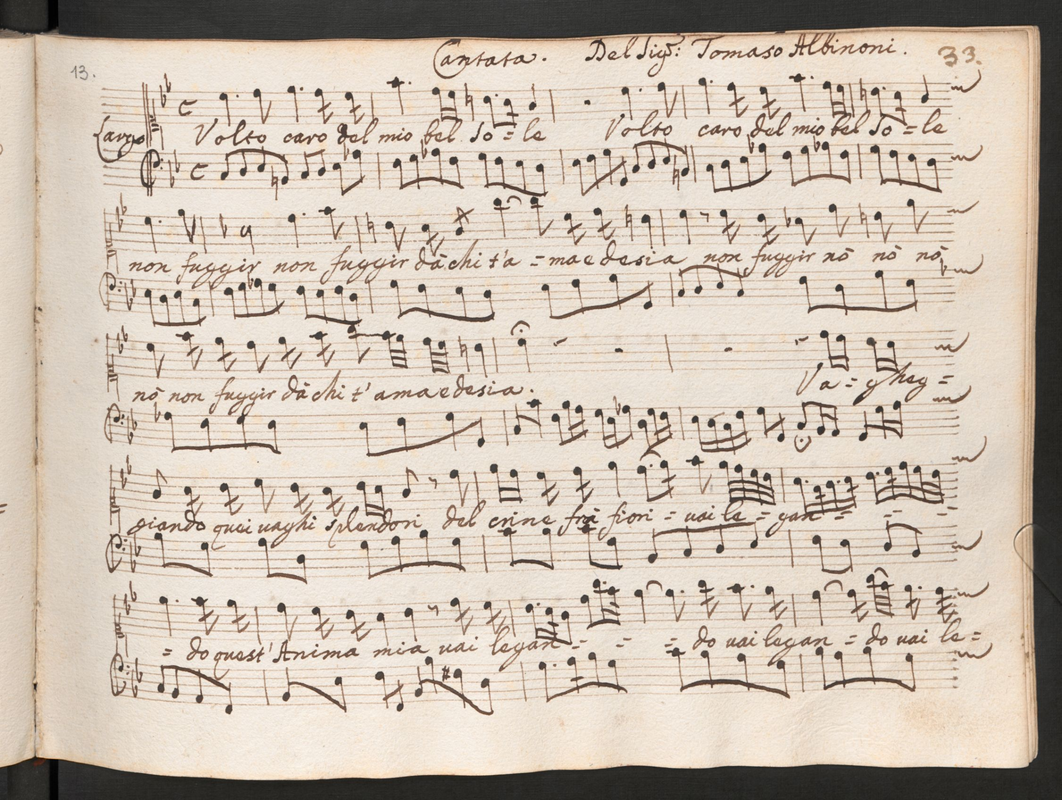 13.
Cantata. Del Sigr: Tomaso Albinoni. 33.
Largo
Volto caro del mio bel So = le Volto caro del mio bel So = le
non fuggir non fuggir dà chi t'a = ma e desia non fuggir nò nò nò
nò non fuggir dà chi t'ama e desia. Va = gheg =
giando quei vaghi splendori del crine frà fiori = vai le = gan = = =
= do quest'Anima mia vai legan = = = = do vai legan = do vai le =